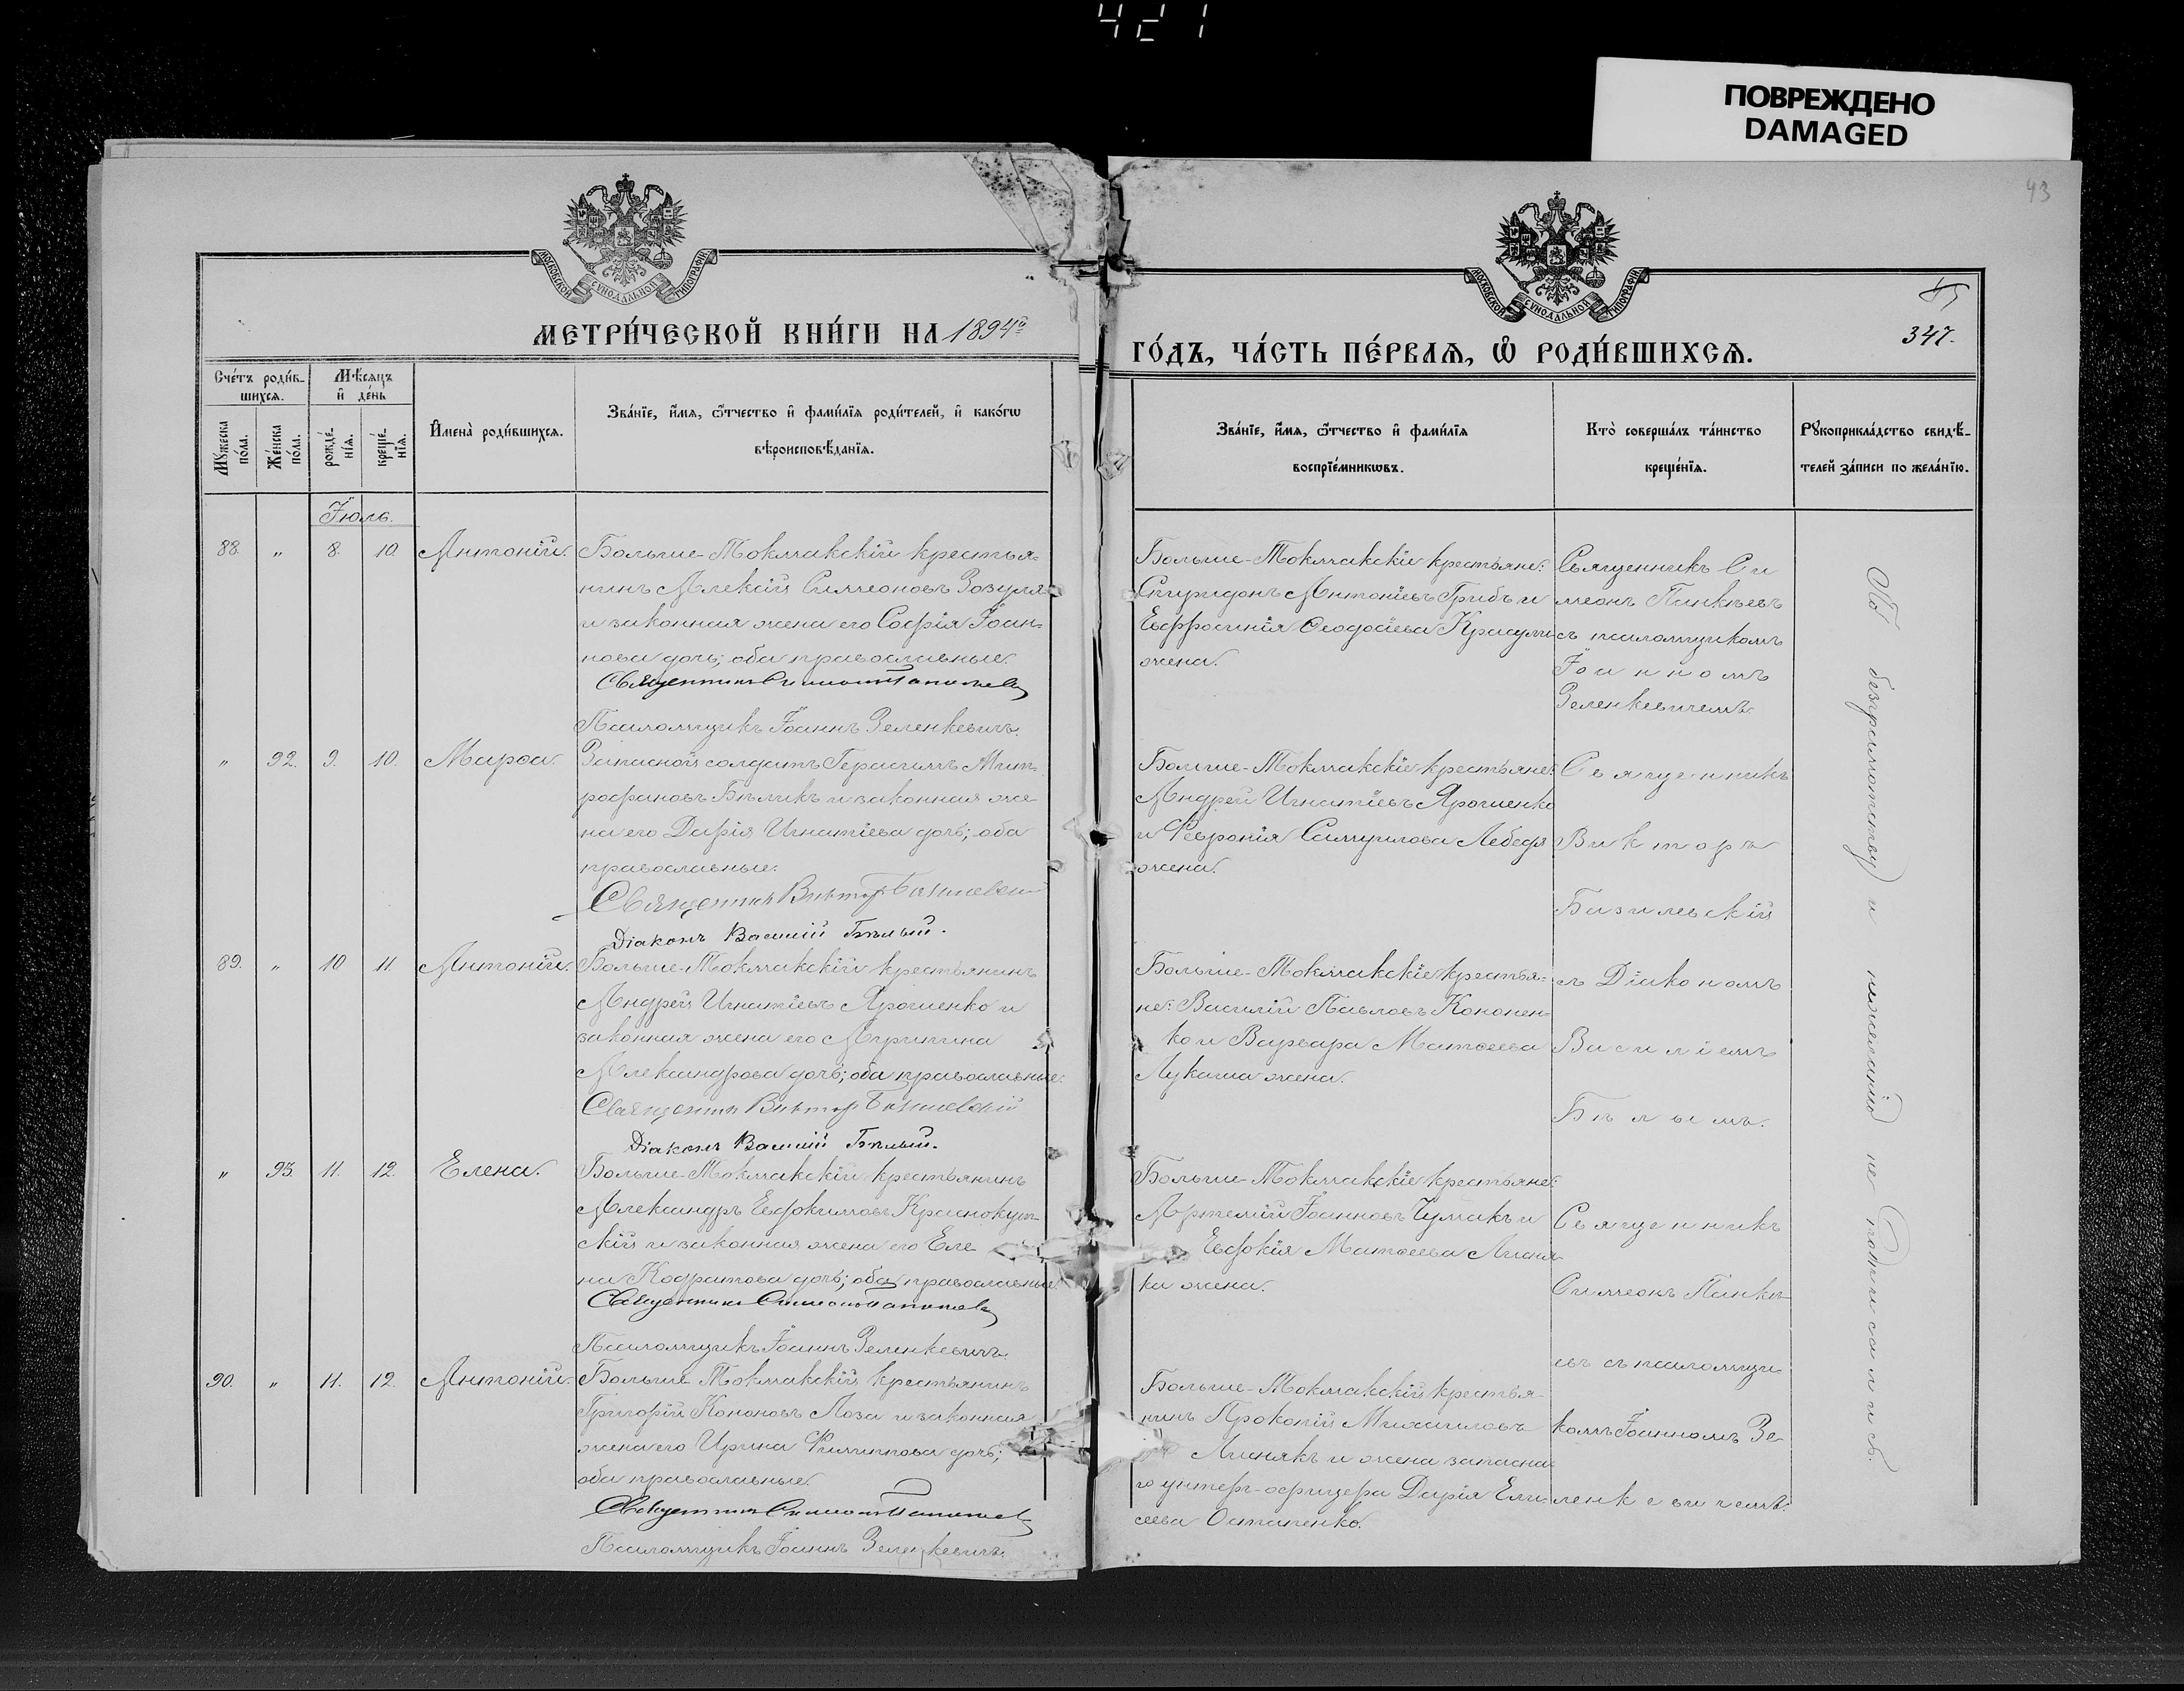 421
ПОВРЕЖДЕНО
DAMAGED
43
МОСКОВСКОЙ СУНОДАЛЬНОЙ ТИПОГРАФІИ
МОСКОВСКОЙ СУНОДАЛЬНОЙ ТИПОГРАФІИ
МЕТРИ́ЧЕСКОЙ КНИ́ГИ НА 1894й
ГО́ДЪ, ЧА́СТЬ ПЕ́РВАѦ, Ѡ҆ РОДИ́ВШИХСѦ.
347.
Сче́тъ роди́в-
шихсѧ.
Мѣ́сѧцъ
и҆ де́нь
Мꙋ́жеска
по́ла.
Же́нска
по́ла.
рожде́-
нїѧ.
креще́-
нїѧ.
И҆мена̀ роди́вшихсѧ.
Зва́нїе, и҆́мѧ, ѻ҆́тчество и҆ фами́лїѧ роди́телей, и҆ како́гѡ
вѣроисповѣ́данїѧ.
Зва́нїе, и҆́мѧ, ѻ҆́тчество и҆ фами́лїѧ
воспрїе́мникѡвъ.
Кто̀ соверша́лъ та́инство
креще́нїѧ.
Рꙋкоприкла́дство свидѣ́-
телей за́писи по жела́нїю.
Іюль.
88. „ 8. 10. Антоній.
Больше-Токмакскій крестья-
нинъ Алексій Симеоновъ Зозуля
и законная жена его Софія Іоан-
нова дочь; оба православные.
Священникъ Симеонъ Панкѣевъ
Псаломщикъ Іоаннъ Зеленкевичъ.
Больше-Токмакскіе крестьяне:
Спиридонъ Антоніевъ Грибъ и
Евфросинія Ѳеодосіева Красули
жена.
Священникъ Си
меонъ Панкѣевъ
съ псаломщикомъ
Іоанномъ
Зеленкевичемъ.
„ 92. 9. 10. Марѳа.
Запасной солдатъ Герасимъ Мит-
рофановъ Бѣликъ и законная же
на его Дарія Игнатіева дочь; оба
православные.
Священникъ Викторъ Базилевскій
Діаконъ Василій Бѣлый.
Больше-Токмакскіе крестьяне:
Андрей Игнатіевъ Ярошенко
и Февронія Самуилова Лебедя
жена.
Священникъ
Викторъ
Базилевскій
съ Діакономъ
Василіемъ
Бѣлымъ.
89. „ 10 11. Антоній.
Больше-Токмакскій крестьянинъ
Андрей Игнатіевъ Ярошенко и
законная жена его Агрипина
Александрова дочь; оба православные.
Священникъ Викторъ Базилевскій
Діаконъ Василій Бѣлый.
Больше-Токмакскіе крестья-
не: Василій Павловъ Кононен-
ко и Варвара Матѳеева
Лукаша жена.
„ 93. 11. 12. Елена.
Больше-Токмакскій крестьянинъ
Александръ Евфокимовъ Краснокут-
скій и законная жена его Еле
на Кодратова дочь; оба православные.
Священникъ Симеонъ Панкѣевъ
Псаломщикъ Іоаннъ Зеленкевичъ.
Больше-Токмакскіе крестьяне:
Артемій Іоанновъ Чумакъ и
Евфокія Матѳеева Лисня-
ка жена.
Священникъ
Симеонъ Панкѣ-
евъ съ псаломщи
комъ Іоанномъ Зе-
ленкевичемъ.
90. „ 11. 12. Антоній.
Больше-Токмакскій крестьянинъ
Григорій Кононовъ Лоза и законная
жена его Ирина Филиппова дочь;
оба православные.
Священникъ Симеонъ Панкѣевъ
Псаломщикъ Іоаннъ Зеленкевичъ.
Больше-Токмакскій крестья-
нинъ Прокопій Михаиловъ
Лиснякъ и жена запасна-
го унтеръ-офицера Дарія Ели-
сеева Остапенко.
По безграмотству и нежеланію не подписались.